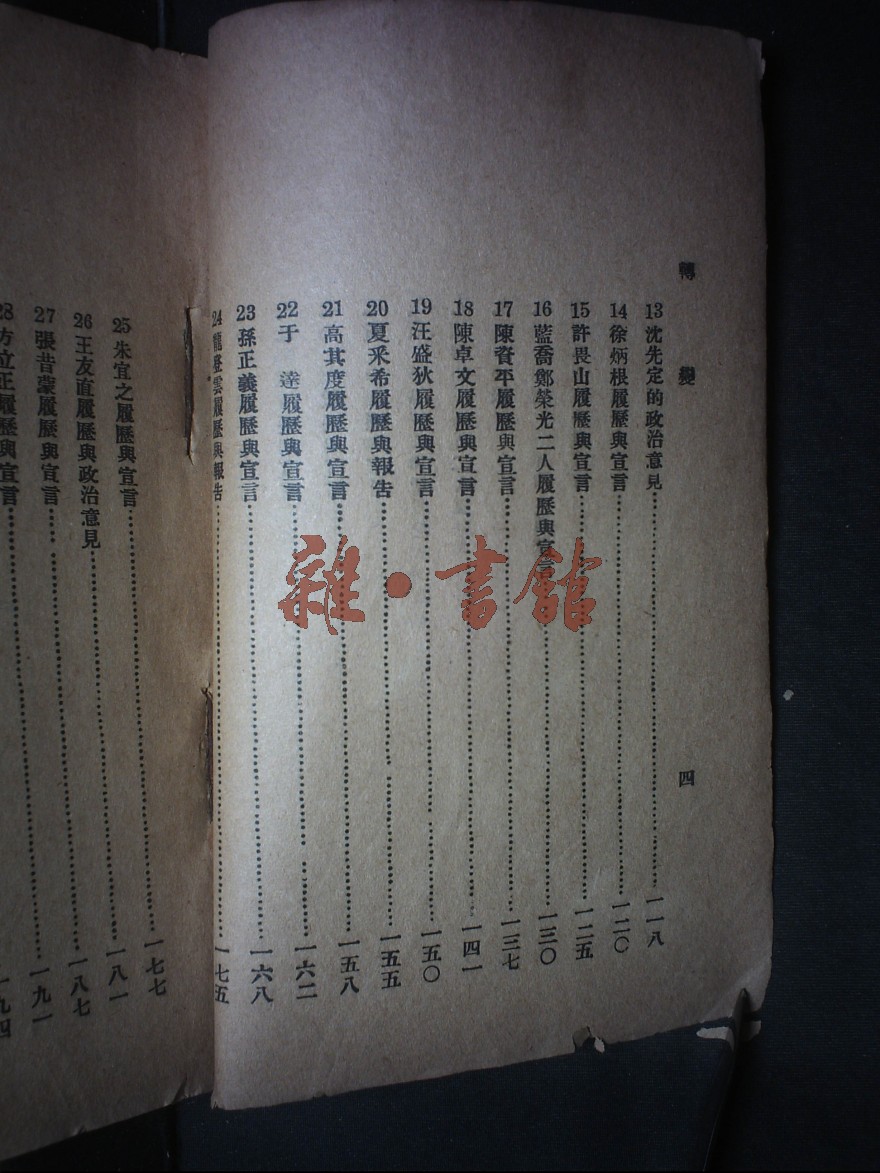 轉變
四
13 沈先定的政治意見 一一八
14 徐炳根履歷與宣言 一二〇
15 許畏山履歷與宣言 一二五
16 藍喬鄭榮光二人履歷與宣言 一三〇
17 陳資平履歷與宣言 一三七
18 陳卓文履歷與宣言 一四一
19 汪盛狄履歷與宣言 一五〇
20 夏采希履歷與報告 一五五
21 高其度履歷與宣言 一五八
22 于達履歷與宣言 一六二
23 孫正義履歷與宣言 一六八
24 龍登雲履歷與報告 一七五
25 朱宜之履歷與宣言 一七七
26 王友直履歷與政治意見 一八一
27 張昔蒙履歷與宣言 一八七
28 方立正履歷與宣言 一九一
一九四
雜·書館